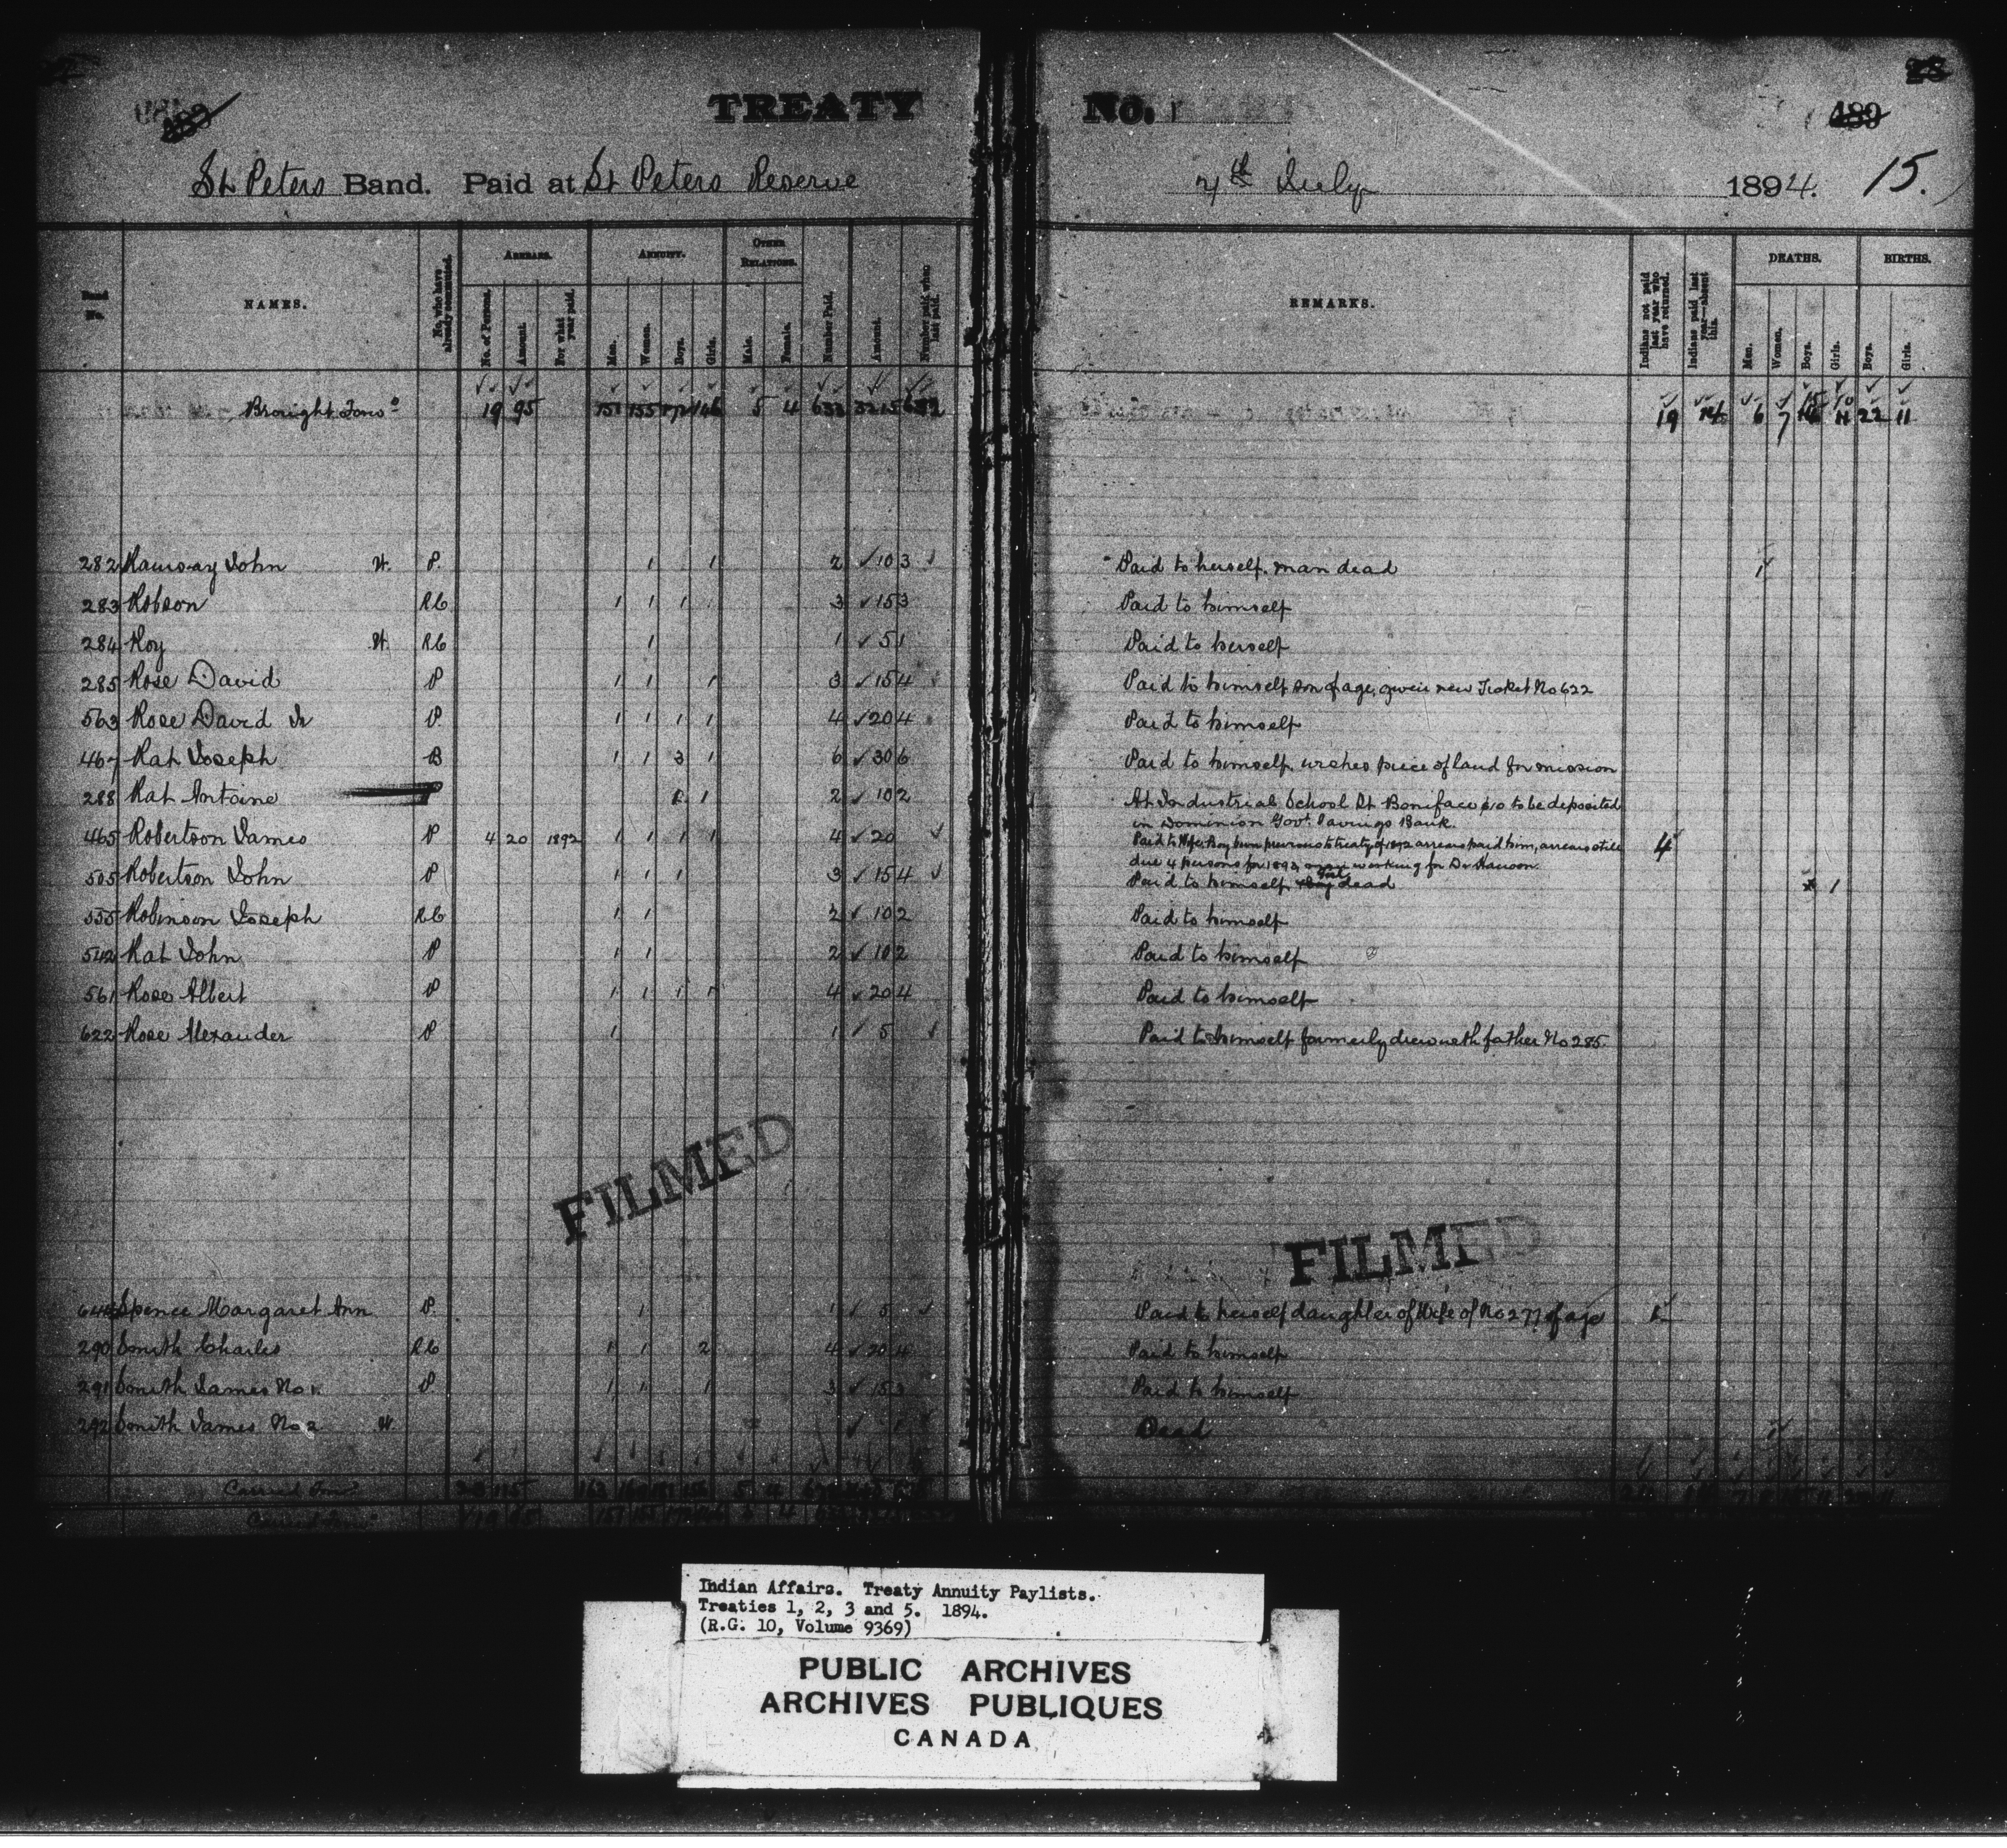 TREATY No. 1
St Peters Band. Paid at St Peters Reserve 4th July 1894. 15.
Band No. NAMES. No. who have already commuted. ARREARS. No. of Persons. Amount. For what year paid. ANNUITY. Men. Women. Boys. Girls. OTHER RELATIONS. Male. Female. Number Paid. Amount. Number paid when last paid. REMARKS. Indians not paid last year who have returned. Indians paid last year—absent this. DEATHS. Men. Women. Boys. Girls. BIRTHS. Boys. Girls.
Brought Forwd 19 95 151 155 172 146 5 4 633 3215 19 6 7 22 11
282 Ramsay John W. P. 1 1 2 10 3 Paid to herself. man dead 1
283 Robson RC 1 1 1 3 15 3 Paid to himself
284 Roy W. RC 1 1 5 1 Paid to herself
285 Rose David P 1 1 1 3 15 4 Paid to himself son of age, given new Ticket No 622
563 Rose David Jr P. 1 1 1 1 4 20 4 Paid to himself
467 Rat Joseph B 1 1 3 1 6 30 6 Paid to himself, wishes piece of land for mission
288 Rat Antoine P 1 2 10 2 At Industrial School St Boniface $10 to be deposited
in Dominion Govt. Savings Bank.
465 Robertson James P 4 20 1892 1 1 1 1 4 20 Paid to Wife. Boy born previous to treaty of 1892 arrears paid him, arrears still 4
due 4 persons for 1893, man working for Dr
505 Robertson John P 1 1 1 3 15 4 Paid to himself, girl dead 1
555 Robinson Joseph RC 1 1 2 10 2 Paid to himself
542 Rat John P 1 1 2 10 2 Paid to himself
561 Rose Albert P 1 1 1 1 4 20 4 Paid to himself
622 Rose Alexander P 1 1 5 Paid to himself formerly drew with father No 285.
FILMED FILMED
Spence Margaret Ann P. 1 1 5 Paid to herself daughter of Wife of No 277 of age 1
290 Smith Charles RC 1 1 2 4 20 4 Paid to himself
291 Smith James No 1. P 1 1 1 3 15 3 Paid to himself
292 Smith James No 2 W. 1 Dead 1
Carried Forwd 23 115 163 5 4
Carried Forwd 19 95 151 155
Indian Affairs. Treaty Annuity Paylists.
Treaties 1, 2, 3 and 5. 1894.
(R.G. 10, Volume 9369)
PUBLIC ARCHIVES
ARCHIVES PUBLIQUES
CANADA